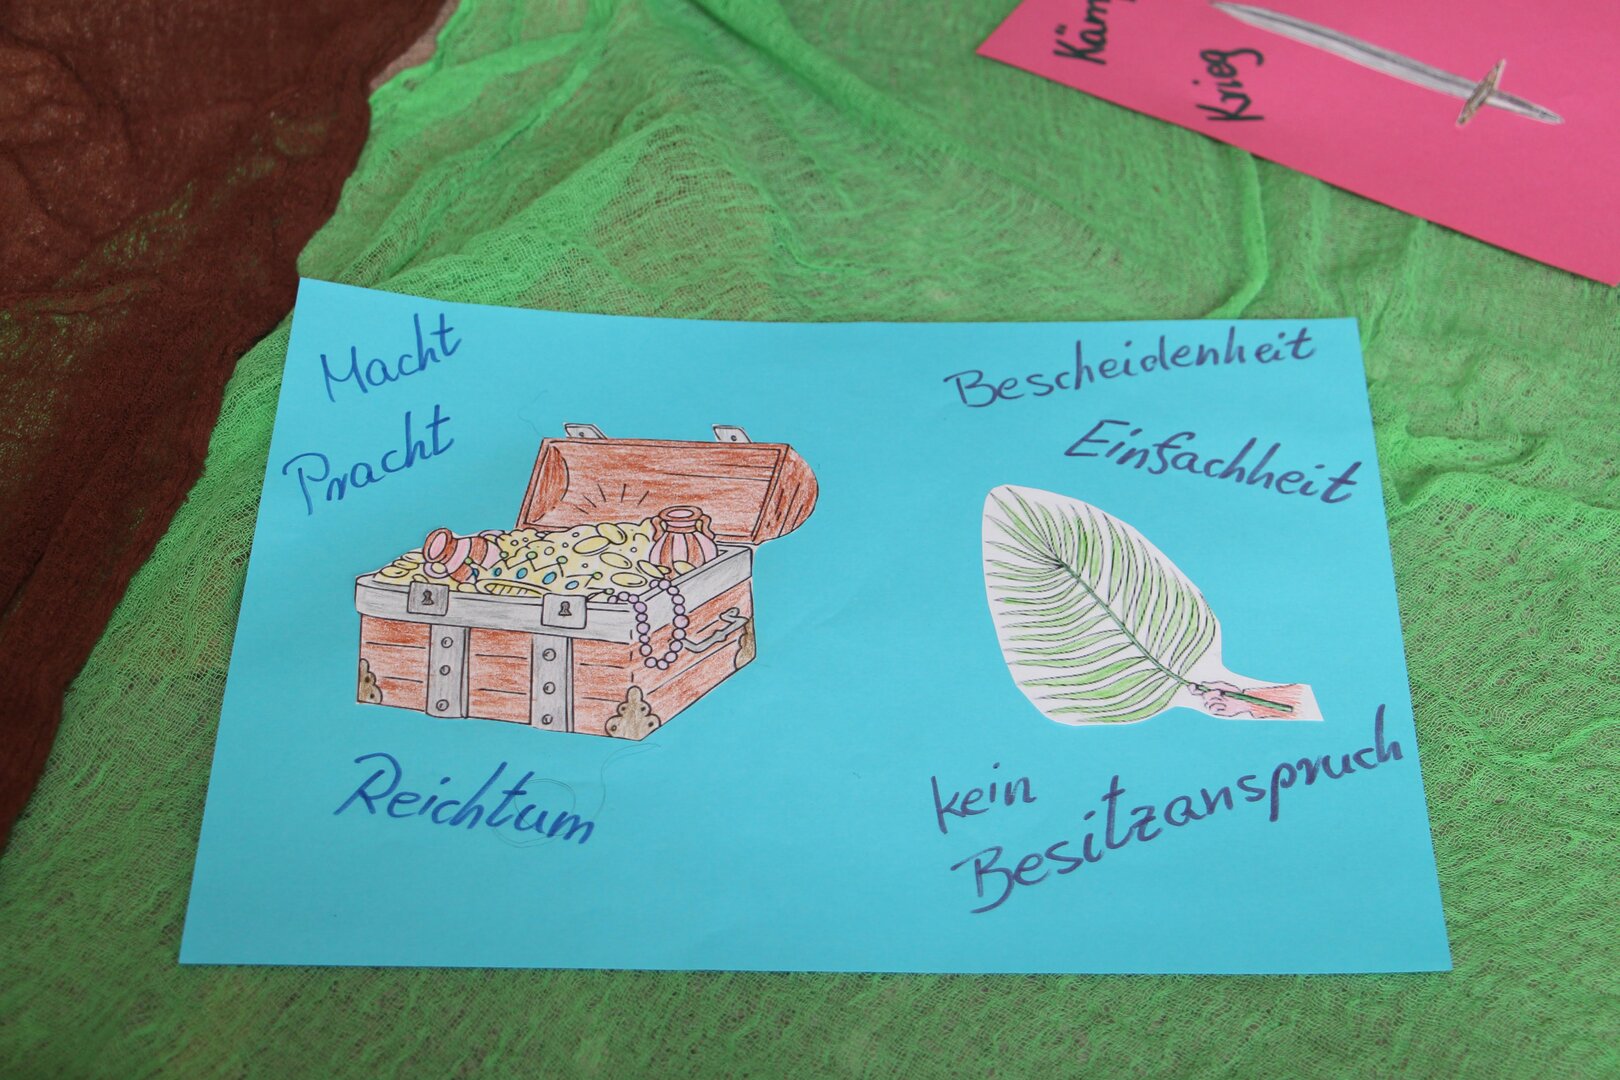 Krieg
Macht
Pracht
Reichtum
Bescheidenheit
Einfachheit
kein
Besitzanspruch